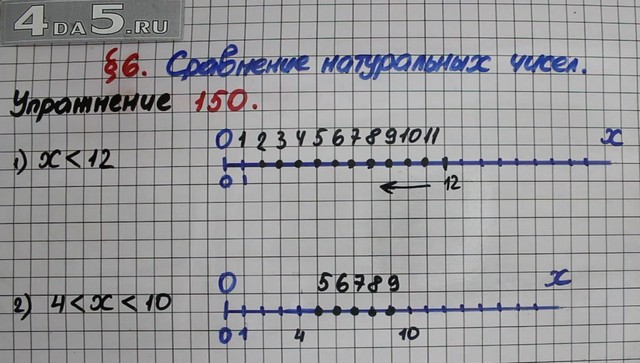 4DA5.RU
§6. Сравнение натуральных чисел.
Упражнение 150.
0 1 2 3 4 5 6 7 8 9 10 11 x
1) x < 12
0 1 12
0 5 6 7 8 9 x
2) 4 < x < 10
0 1 4 10